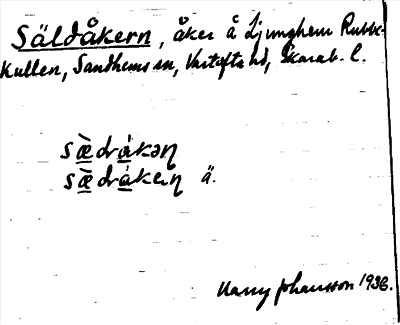 Säldåkern, åker å Ljunghem Rubbe-
Kullen, Sandhems sn, Vartofta hd, Skarab. l.
sæ̀dråkəɳ
sæ̀dråkeɳ ä.
Harry Johansson 1936.